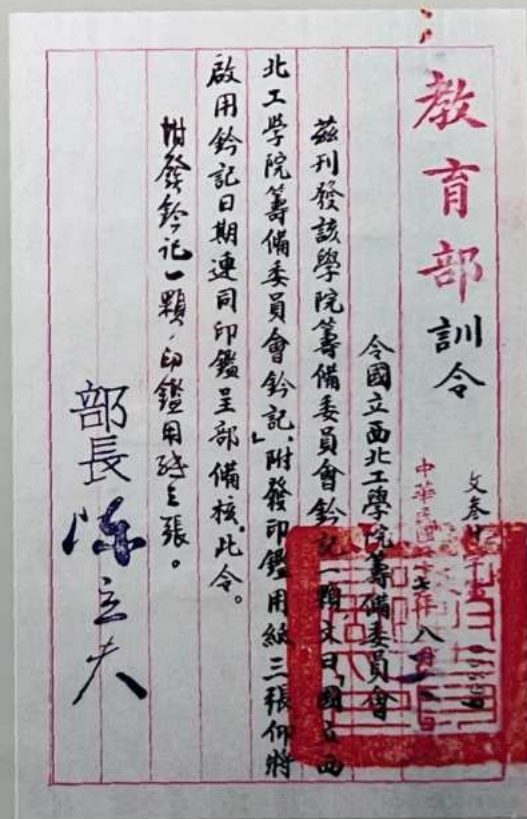 教育部訓令
中華民國廿七年八月
令國立西北工學院籌備委員會
茲刊發該學院籌備委員會鈐記一顆文曰「國立西
北工學院籌備委員會鈐記」附發印鑑用紙三張仰將
啟用鈐記日期連同印鑑呈部備核。此令。
附發鈐記一顆，印鑑用紙三張。
部長陳立夫